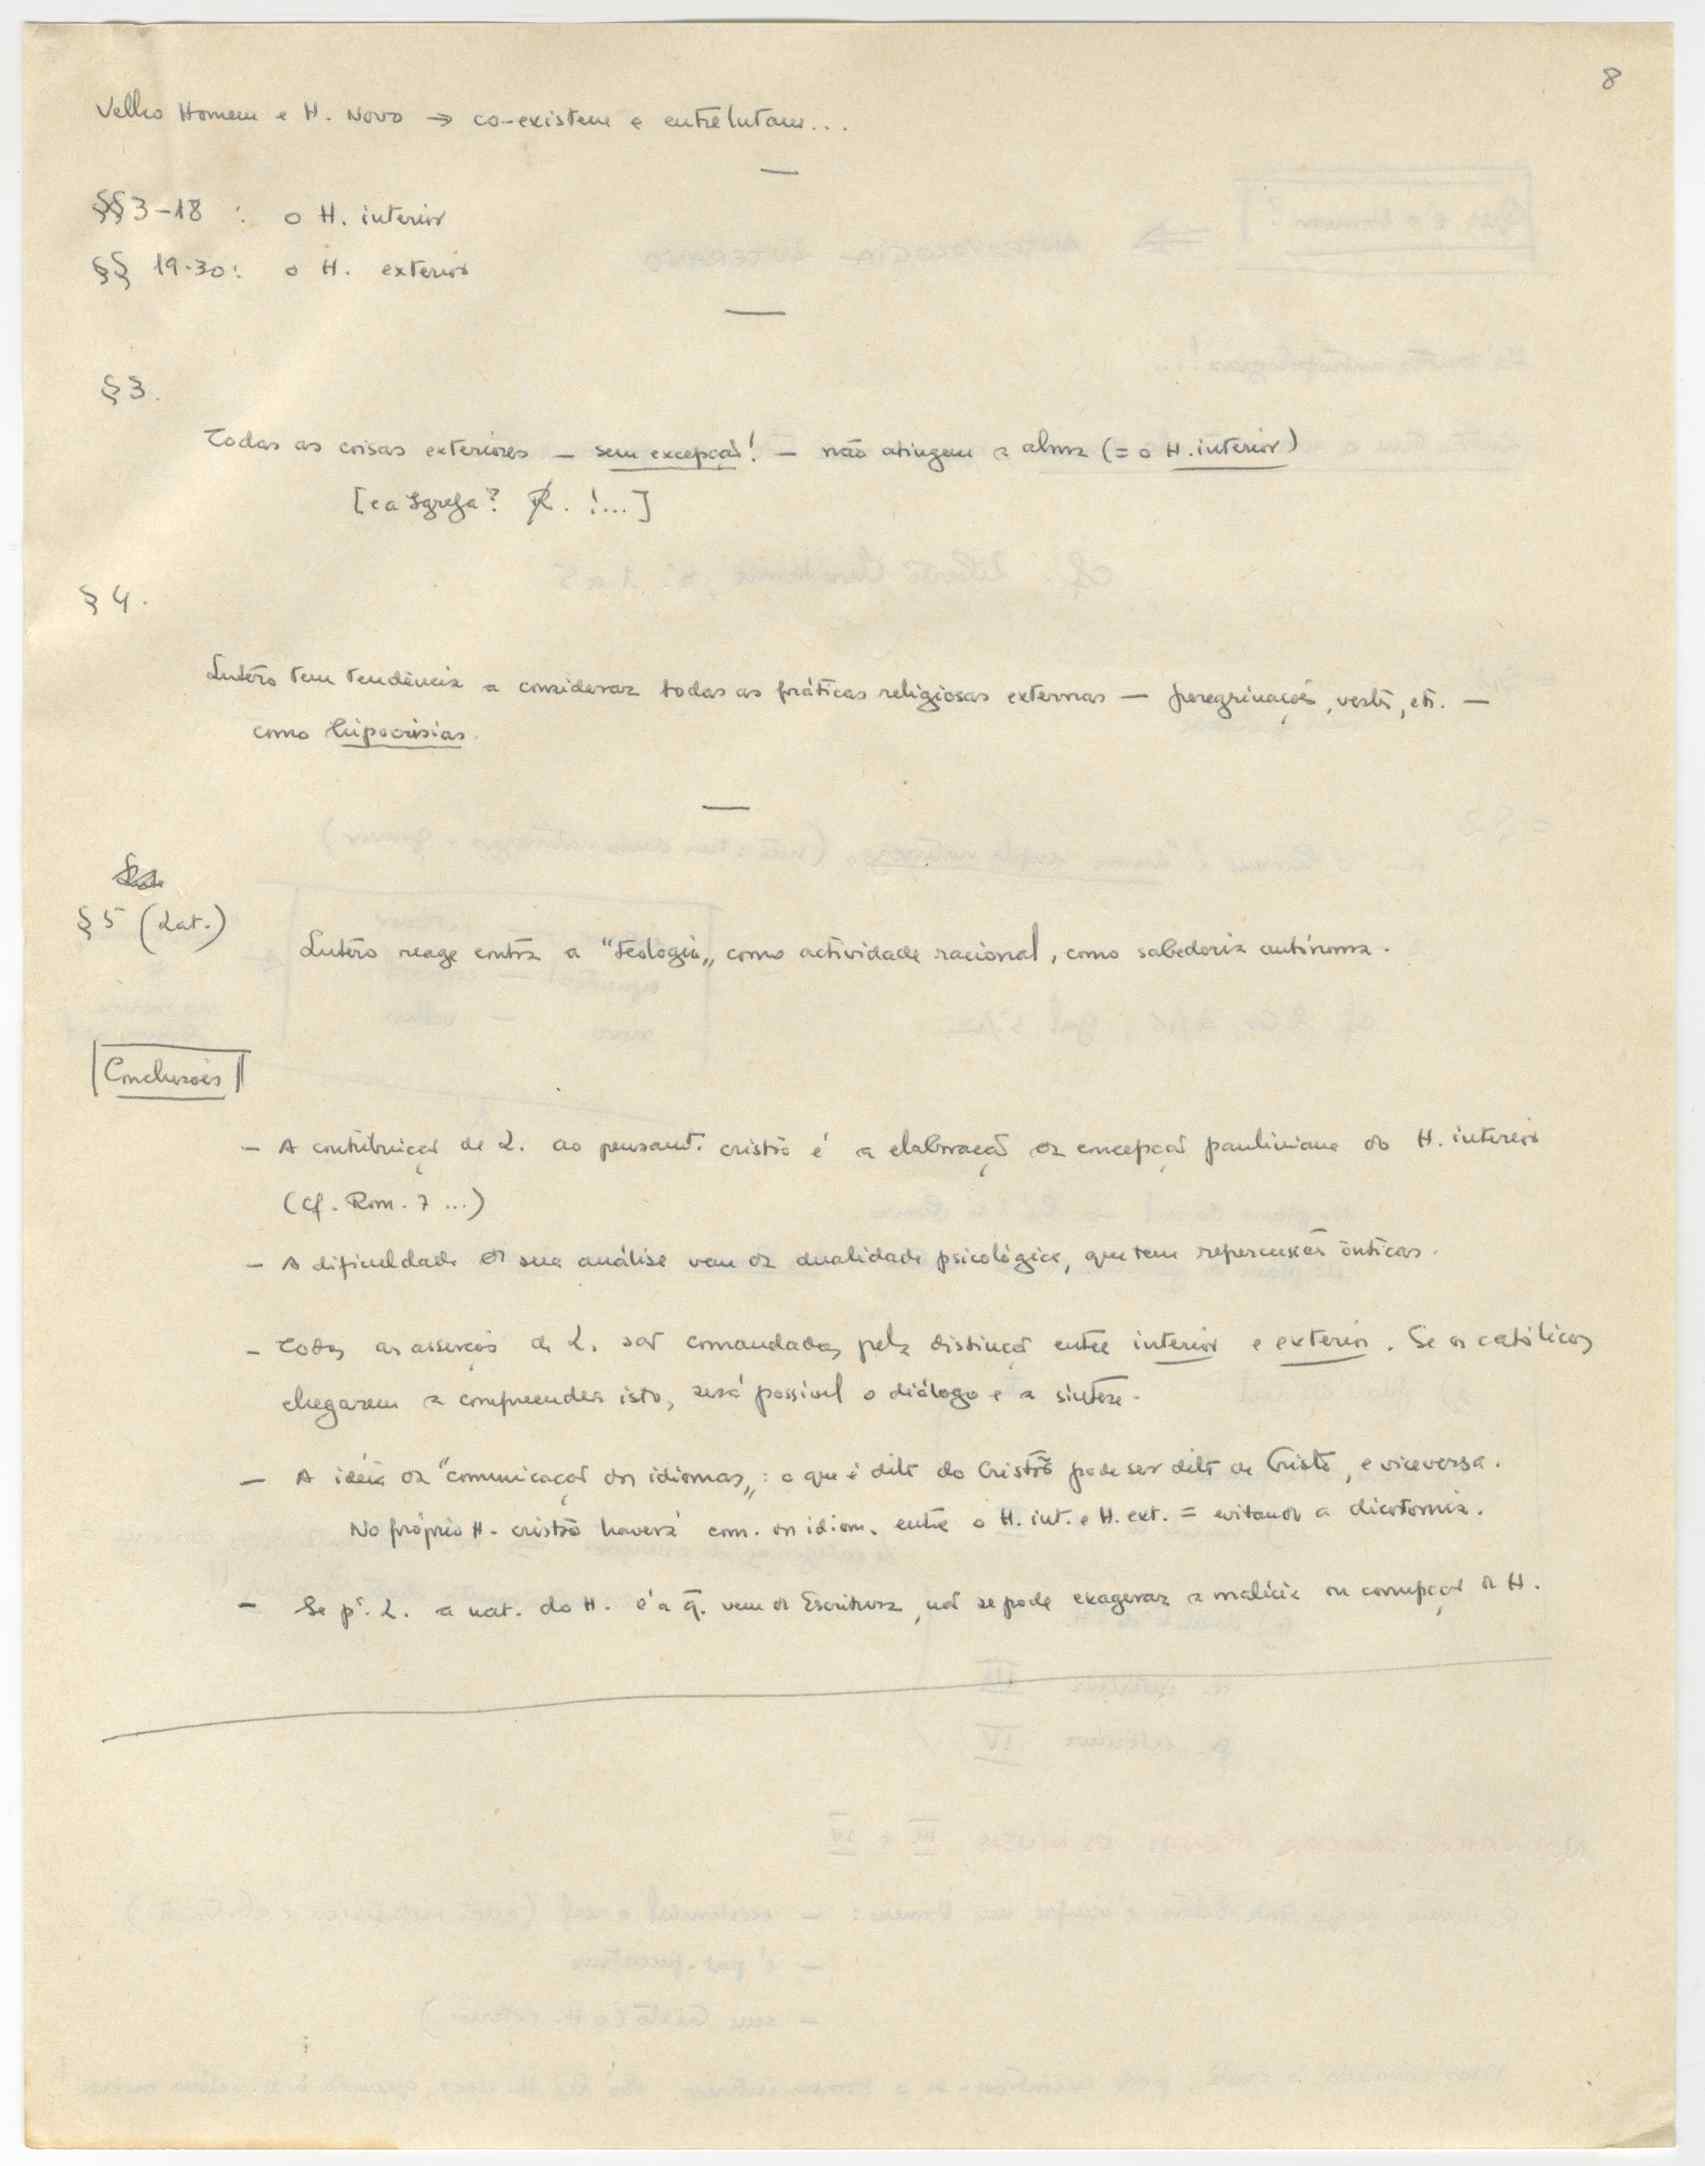 8
Velho Homem e H. Novo → co-existem e entrelutam...
§§ 3-18 : o H. interior
§§ 19-30: o H. exterior
§ 3.
Todas as coisas exteriores — sem excepção! — não atingem a alma (= o H. interior)
[e a Igreja? R. !...]
§ 4.
Lutero tem tendência a considerar todas as práticas religiosas externas — peregrinações, vestes, etc. —
como hipocrisias.
§ 5 (Lat.)
Lutero reage contra a "teologia„ como actividade racional, como sabedoria autónoma.
Conclusões
— A contribuição de L. ao pensamt. cristão é a elaboração da concepção pauliniana do H. interior
(cf. Rom. 7 ...)
— A dificuldade da sua análise vem da dualidade psicológica, que tem repercussões ônticas.
— Todas as asserções de L. são comandadas pela distinção entre interior e exterior. Se os católicos
chegarem a compreender isto, será possível o diálogo e a síntese.
— A idéia da "comunicação dos idiomas„: o que é dito do Cristão pode ser dito de Cristo, e viceversa.
No próprio H. cristão haverá com. dos idiom. entre o H. int. e H. ext. = evitando a dicotomia.
— Se pª. L. a nat. do H. é a q̄. vem da Escritura, não se pode exagerar a malícia ou corrupção do H.